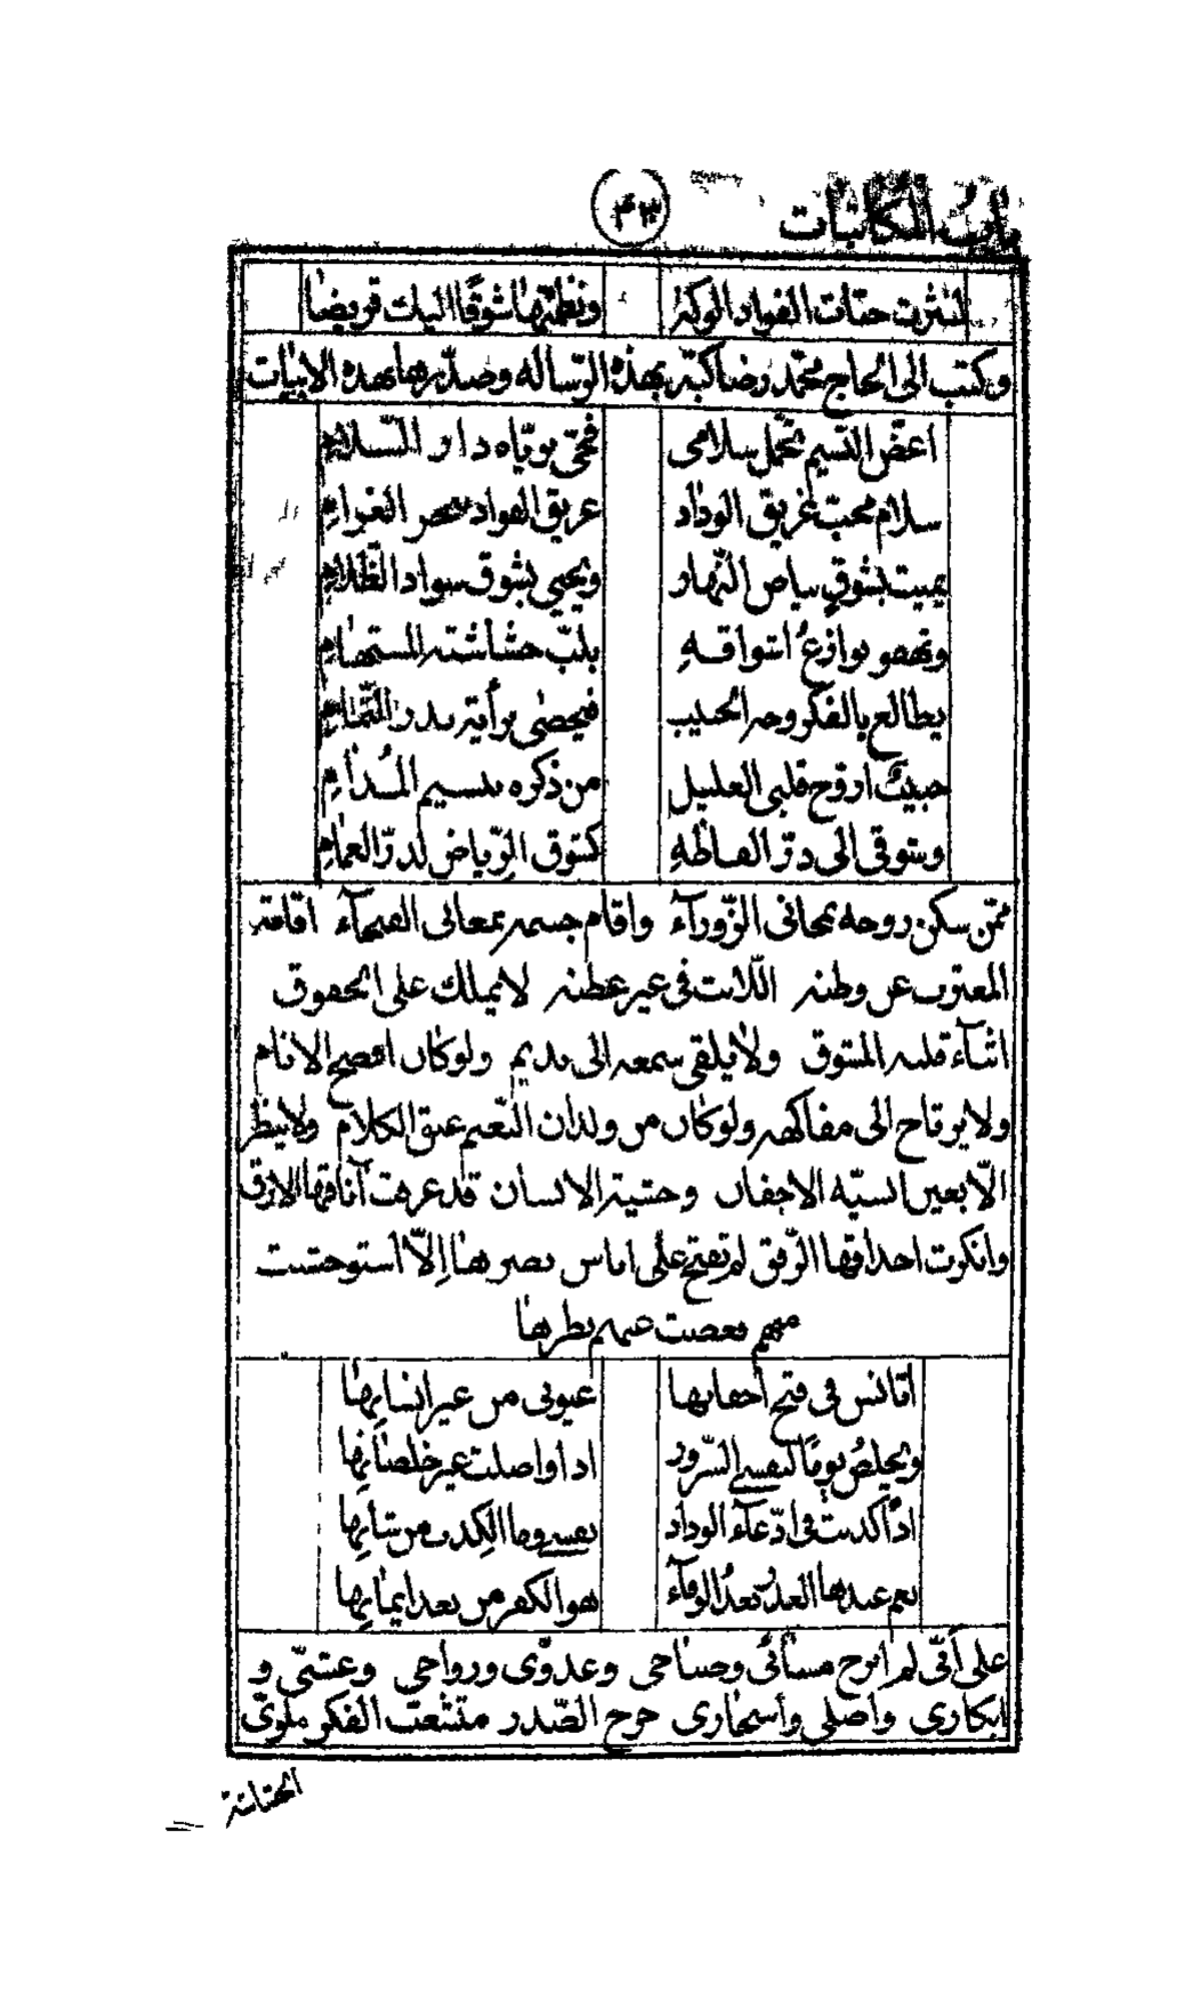 باب المكاتبات
٤٣
لنثرت حبات الفواد الوكة ونظمتها شوقًا اليك قريضا
وكتب الى الحاج محمد رضا كبّه بهذه الرّساله وصدّرها بهذه الابيات
اغضّ النسيم تحمّل سلامى فحيّ بريّاه دار السّلام
سلام محبّ غريق الوداد عريق الفواد الغرام
يميت بشوقٍ بياض النّهار ويحيى بشوق سواد الظّلام
وتهفو نوازعُ اشواقهِ بلبّ حشاشته المستهام
يطالع بالفكر وجه الحبيب فيحضى برأيته بدر التّمام
حبيبٌ اروّح قلبى العليل من ذكره بنسيم المُدام
وشوقى الى درّ الفاظهِ كشوق الرّياض لدرّ الغمام
ممّن سكن روحه بمحانى الزّورآء واقام جسمه بمعانى الفيحآء اقامة
المغترب عن وطنه اللابث فى غير عطنه لا يملك على الحقوق
اثنآء قلبه المشوق ولا يلقى سمعه الى نديم ولو كان افصح الانام
ولا يرتاح الى مفاكهه ولو كان من ولدان النّعيم عبق الكلام ولا ينظر
الّا بعين انسيّه الاجفان وحشية الانسان قد عرفت آنافها الارق
وانكرت احداقها الرّفق لم تفتح على اناس بصر بها اِلاّ استوحشت
منهم فغضت عنهم نظرها
اتانس فى فتح اجفانها عيونى من غير انسانِها
ويخلصُ يومًا لنفسى السّرور اذا واصلت غير خلصانِها
اذًا كذبت فى ادّعآء الوداد نفسى وما الكِذب من شأنِها
نعم عندها الغدرُ بعدُ الوفآء هو الكفر من بعد ايمانِها
على أنّى لم ابرح مسائى وصباحى وغدوّى ورواحى وعشيّى و
ابكارى واصلى وأسحارى حرج الصّدر متشعّب الفكر ملوىّ
الحشاشة